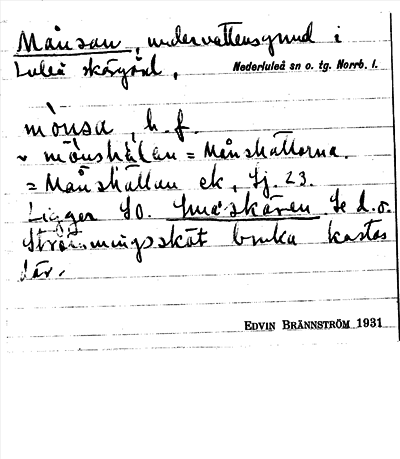 Månsan, undervattensgrund i
Luleå skärgård,
Nederluleå sn o. tg. Norrb. l.
mònsa, h. f.
~ mònshälan = Månshällorna.
= Månshällan ek, Sj. 23.
Ligger SO. Småskären. Se d.o.
Strömmingssköt bruka kastas
där.
EDVIN BRÄNNSTRÖM 1931